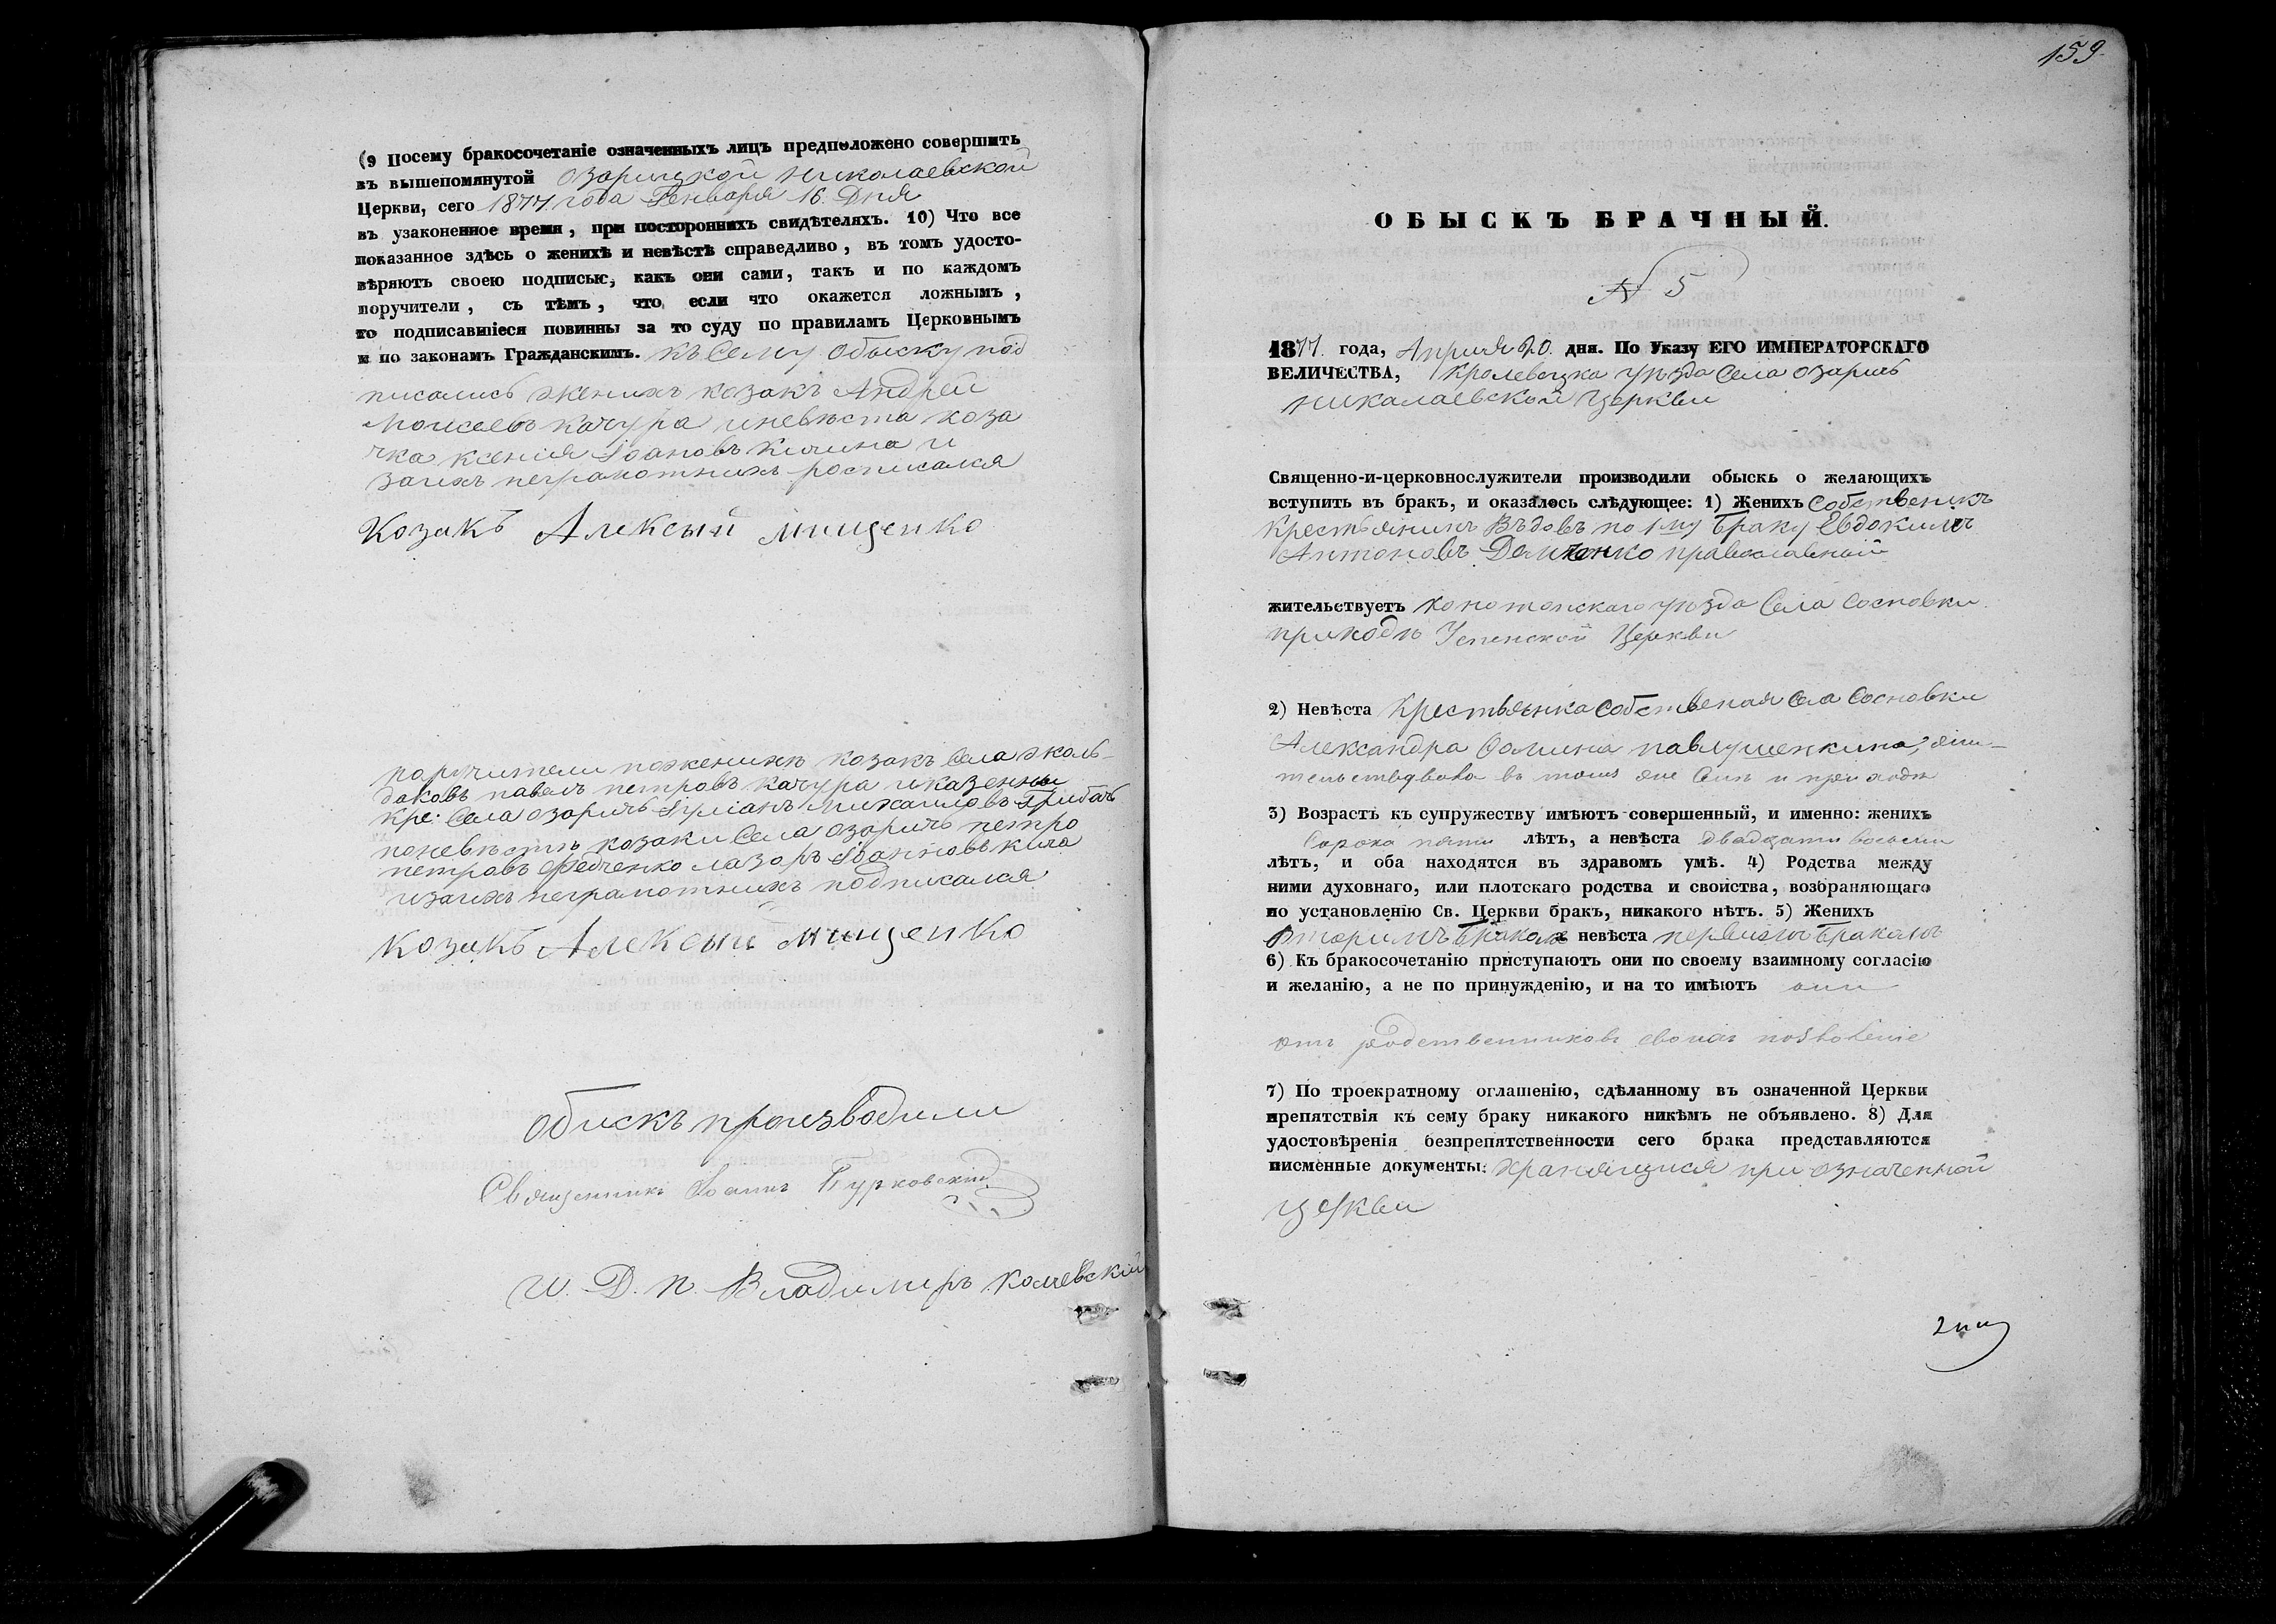 (9 Посему бракосочетаніе означенныхъ лицъ предположено совершить
въ вышепомянутой Озаричской Николаевской
Церкви, сего 1877 года Генваря 16 Дня
въ узаконенное время, при постороннихъ свидѣтеляхъ. 10) Что все
показанное здѣсь о женихѣ и невѣстѣ справедливо, въ томъ удосто-
вѣряютъ своею подписью, какъ они сами, такъ и по каждомъ
поручители, съ тѣмъ, что если что окажется ложнымъ,
то подписавшіеся повинны за то суду по правиламъ Церковнымъ
и по законамъ Гражданскимъ. къ сему обыску под
писались женихъ козакъ Андрей
Моисеевъ Качура и невѣста коза
чка Ксенія Іоановъ Килина и
за ихъ неграмотнихъ росписался
Козакъ Алексѣй Мищенко
поручители по женихѣ козакъ Села Жоль-
даковъ павелъ петровъ Качура и казенны
кре: Села озаричъ Іуліанъ Михаиловъ Грибачъ
по невѣстѣ козаки Села озаричъ петро
петровъ Федченко лазоръ Іоанновъ Кила
и за ихъ неграмотнихъ подписался
Козакъ Алексѣй Мищенко
Обискъ производили
Священникъ Іоаннъ Бурковскій
И. Д. п. Владимиръ
159
ОБЫСКЪ БРАЧНЫЙ.
N 5
1877. года, Априля 20. дня. По Указу ЕГО ИМПЕРАТОРСКАГО
ВЕЛИЧЕСТВА, Кролевецка уѣзда Села озаричъ
Николаевской Церкви
Священно-и-церковнослужители производили обыскъ о желающихъ
вступить въ бракъ, и оказалось слѣдующее: 1) Женихъ Собственикъ
Крестьянинъ Вѣдовъ по 1му Браку Евдокимъ
Антоновъ православній
жительствуетъ Конотопскаго уѣзда Села Сосновки
приходѣ Успенской Церкви
2) Невѣста Крестьянка Собственая Села Сосновки
Александра Фомина павлушенкина, жи-
въ томъ же Селѣ и приходѣ
3) Возрастъ къ супружеству имѣютъ совершенный, и именно: женихъ
Сорока пяти лѣтъ, а невѣста двадцати восьми
лѣтъ, и оба находятся въ здравомъ умѣ. 4) Родства между
ними духовнаго, или плотскаго родства и свойства, возбраняющаго
по установленію Св. Церкви бракъ, никакого нѣтъ. 5) Женихъ
вторимъ Бракомъ невѣста первимъ Бракомъ
6) Къ бракосочетанію приступаютъ они по своему взаимному согласію
и желанію, а не по принужденію, и на то имѣютъ они
отъ родственниковъ своихъ позволеніе
7) По троекратному оглашенію, сдѣланному въ означенной Церкви
препятствія къ сему браку никакого никѣмъ не объявлено. 8) Для
удостовѣренія безпрепятственности сего брака представляются
писменные документы: хранящиися при означенной
церкви